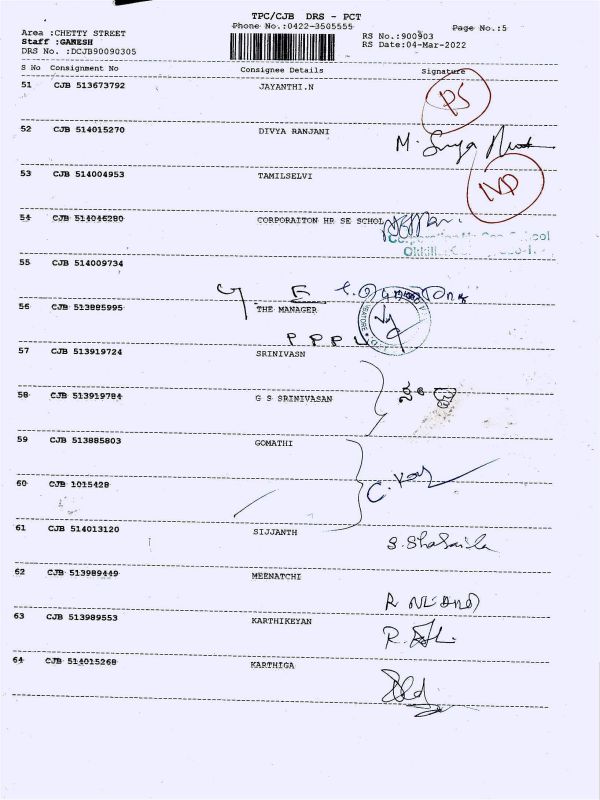 TPC/CJB DRS - PCT
Phone No.:0422-3505555
Page No.:5
Area :CHETTY STREET
Staff :GANESH
DRS No. :DCJB90090305
RS No.:900903
RS Date:04-Mar-2022
S No Consignment No Consignee Details Signature
51 CJB 513673792 JAYANTHI.N
52 CJB 514015270 DIVYA RANJANI
53 CJB 514004953 TAMILSELVI
54 CJB 514046280 CORPORAITON HR SE SCHOL
55 CJB 514009734
56 CJB 513885995 THE MANAGER
P P P L
57 CJB 513919724 SRINIVASN
58 CJB 513919784 G S SRINIVASAN
59 CJB 513885803 GOMATHI
60 CJB 1015428
61 CJB 514013120 SIJJANTH
62 CJB 513989449 MEENATCHI
63 CJB 513989553 KARTHIKEYAN
64 CJB 514015268 KARTHIGA